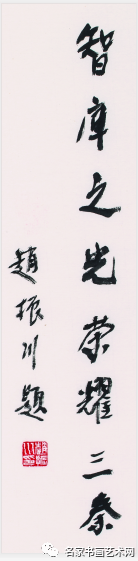 智库之光荣耀三秦
趙振川題
名家书画艺术网